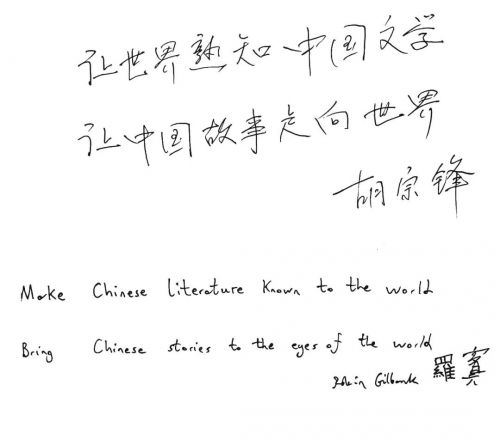 让世界熟知中国文学
让中国故事走向世界
胡宗锋
Make Chinese literature Known to the world
Bring Chinese stories to the eyes of the world
Robin Gilbank 羅賓